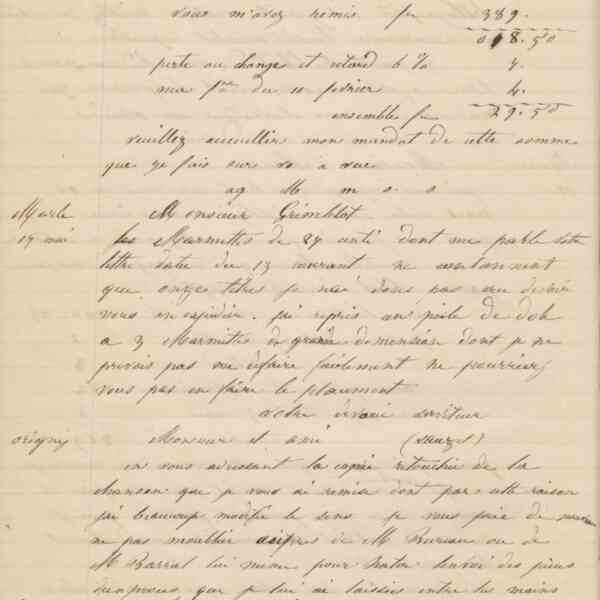 vous m'avez remis fr 389.
18.50
perte au change et retard 6 % 7.
ma f.re du 10 février 4.
ensemble fr 29.50
veuillez accueillir mon mandat de cette somme
que je fais sur vo à vue
ag M m s. s
Marle Monsieur Grimblot
19 mai les Marmittes de 27 centi dont me parle votre
lettre datée du 13 courant ne contiennent
que onze litres je n'ai donc pas cru devoir
vous en expédier. j'ai repris un poile de
a 3 Marmittes de grande demension dont je ne
prevois pas me défaire facilement ne pourriez
vous pas en faire le placement
votre dévoué serviteur
origny Monsieur et ami (Sauzet)
en vous adressant la copie retouchée de la
chanson que je vous ai remise dont par cette raison
j'ai beaucoup modifié le sens je vous prie de
ne pas m'oublier auprès de M Bureau ou de
M Barral lui meme pour hater l'envoi des pieces
que je lui ai laissées entre les mains